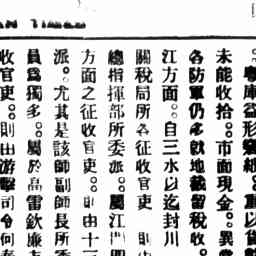 粵庫益形窘絀。重以貨
未能收拾。市面現金。異
各防軍仍多就地截留稅收。
江方面。自三水以迄封川
關稅局所各征收官吏 則由
總指揮部所委派。屬江門四
方面之征收官吏。則由十一
派。尤其是該師副師長所委
員爲獨多。屬於高雷欽廉
收官吏。則由游擊司令何